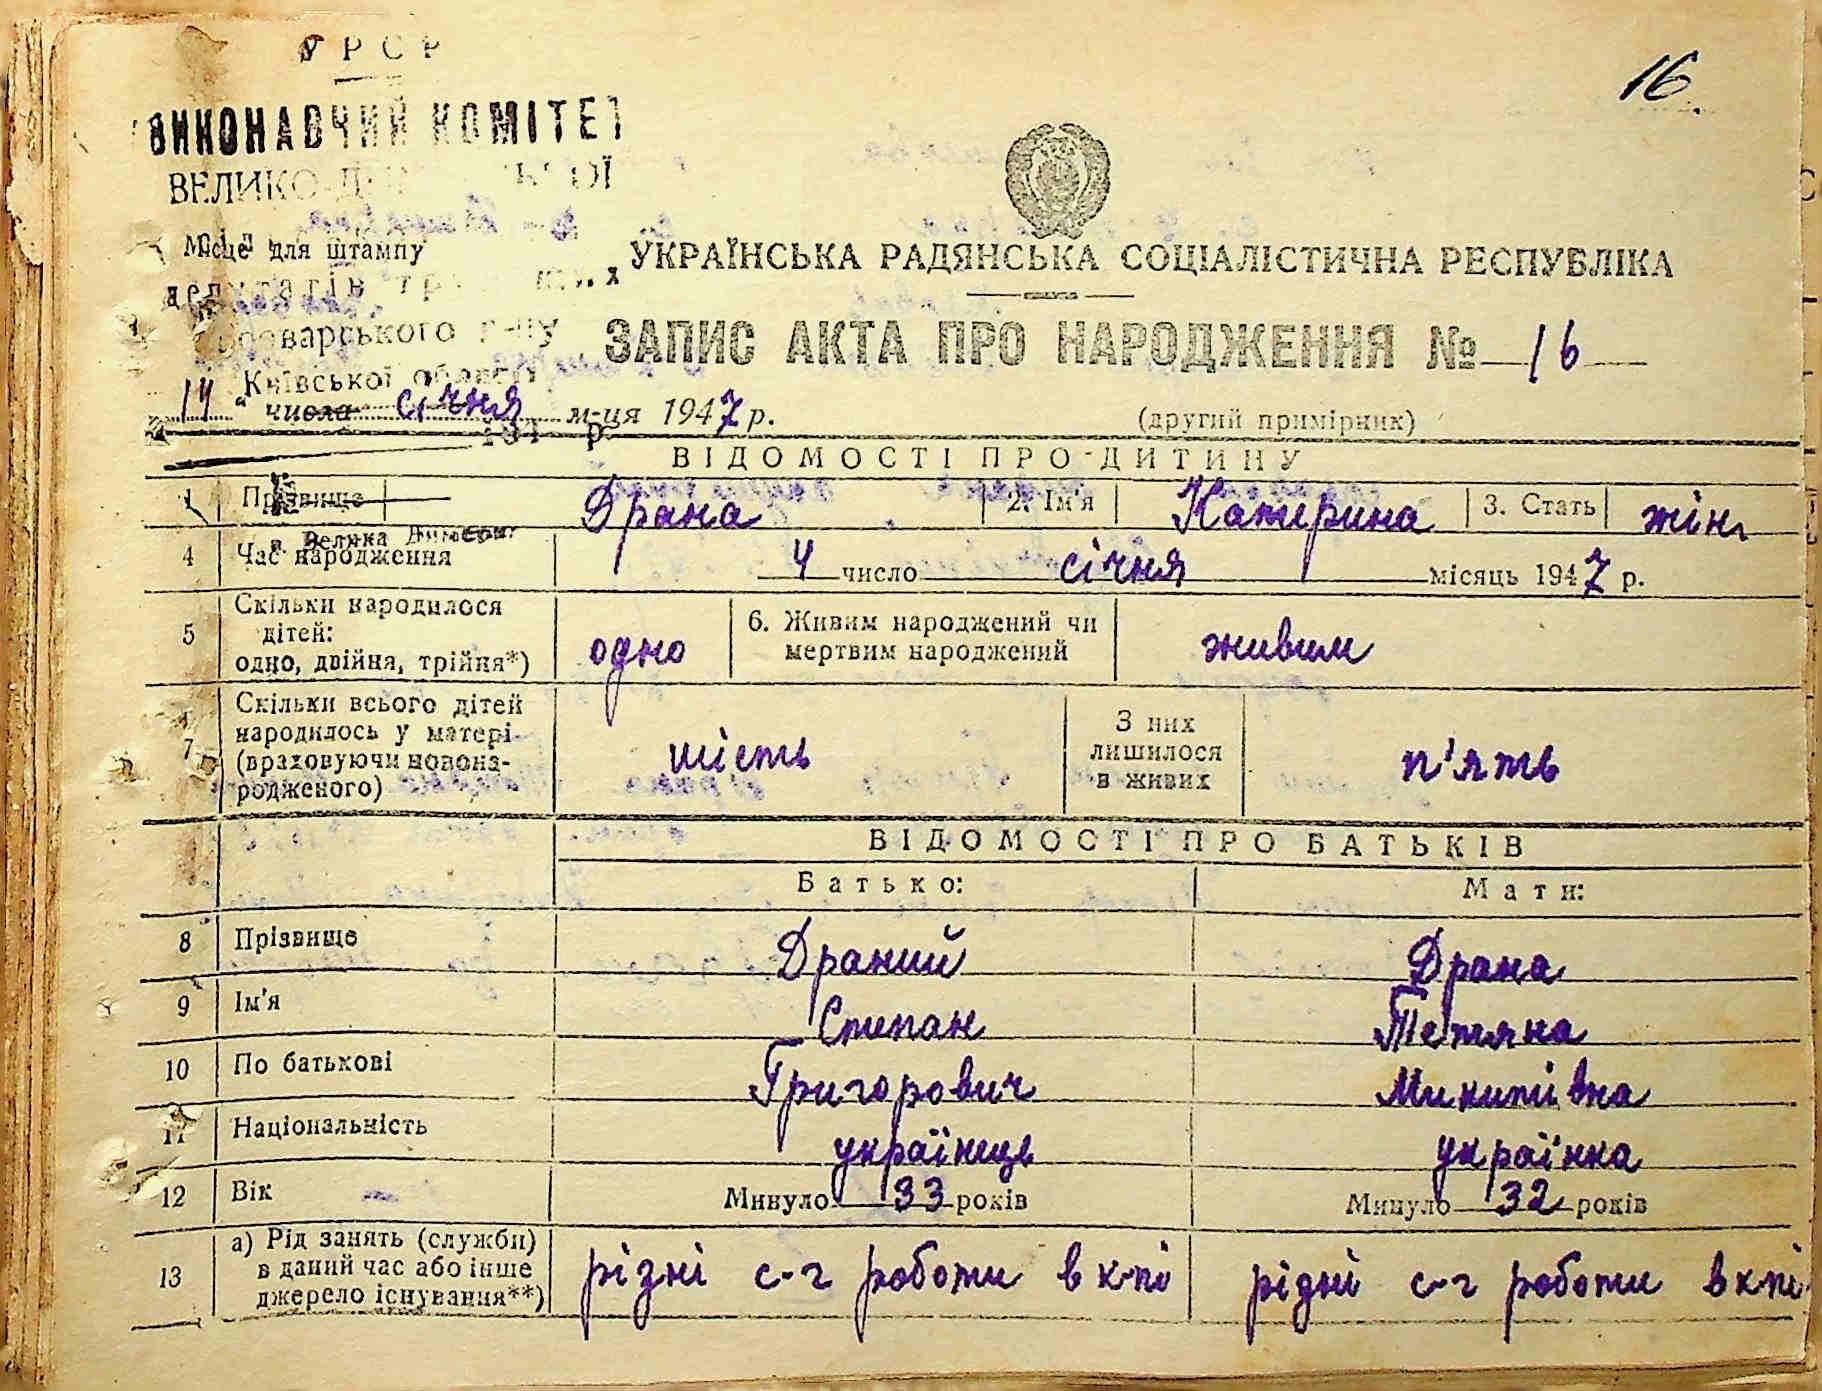 УРСР
16.
ВИКОНАВЧИЙ КОМІТЕТ
ВЕЛИКО-
Місце для штампу
депутатів
УКРАЇНСЬКА РАДЯНСЬКА СОЦІАЛІСТИЧНА РЕСПУБЛІКА
Броварського р-ну
ЗАПИС АКТА ПРО НАРОДЖЕННЯ № 16
Київської області
"14" числа січня м-ця 1947 р.
(другий примірник)
194 р.
ВІДОМОСТІ ПРО ДИТИНУ
1 Прізвище Драна 2. Ім'я Катерина 3. Стать жін.
в. Велика Димерка
4 Час народження 4 число січня місяць 1947 р.
5 Скільки народилося дітей: одно, двійня, трійня*) одно 6. Живим народжений чи мертвим народжений живим
7 Скільки всього дітей народилось у матері (враховуючи новонародженого) шість З них лишилося в живих п'ять
ВІДОМОСТІ ПРО БАТЬКІВ
Батько: Мати:
8 Прізвище Драний Драна
9 Ім'я Степан Тетяна
10 По батькові Григорович Микитівна
11 Національність українець українка
12 Вік Минуло 33 років Минуло 32 років
13 а) Рід занять (служби) в даний час або інше джерело існування**) різні с-г роботи в к-пі рідні с-г роботи в к-пі